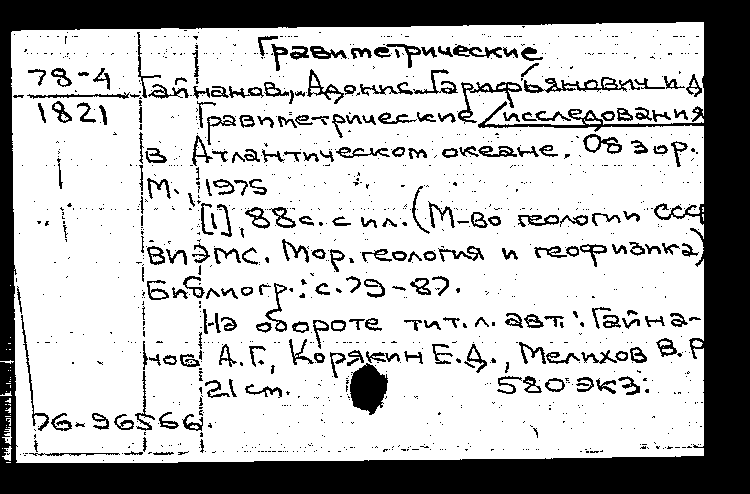 Гравиметрические
78-4 Гайнанов, Адонис Гарифьянович и д
1821 Гравиметрические исследования
в Атлантическом океане. Обзор.
М., 1975
[1], 88 с. с ил. (М-во геологии ССС
ВИЭМС. Мор. геология и геофизика)
Библиогр.: с. 79-87.
На обороте тит. л. авт.: Гайна-
нов А.Г., Корякин Е.Д., Мелихов В.Р
21 см. 580 экз.
76-96566.